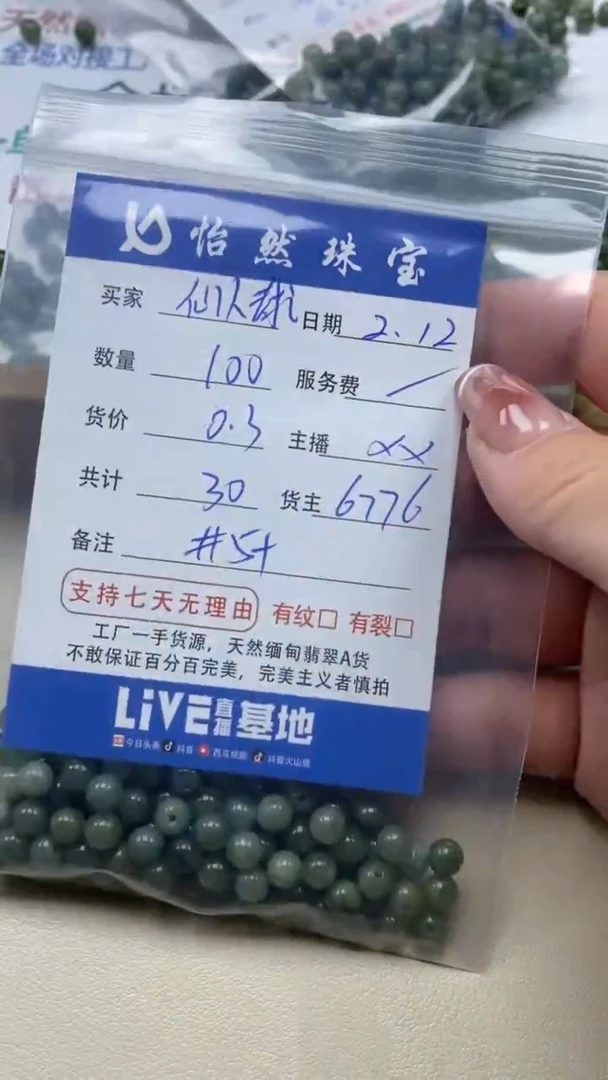 天然
全场对接工
怡然珠宝
买家 仙人球 日期 2.12
数量 100 服务费 /
货价 0.3 主播 XX
共计 30 货主 6776
备注 #5+
支持七天无理由 有纹□ 有裂□
工厂一手货源，天然缅甸翡翠A货
不敢保证百分百完美，完美主义者慎拍
LiVE直播基地
今日头条 抖音 西瓜视频 抖音火山版